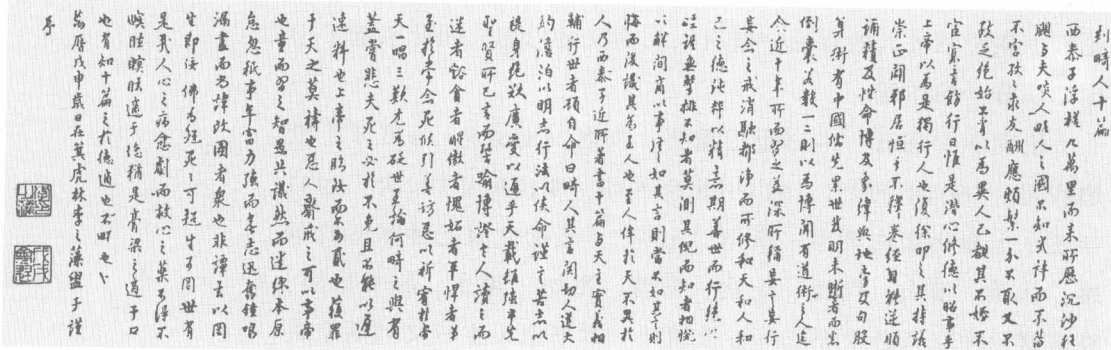 刻畸人十篇
西泰子浮槎九萬里而來所歷沉沙狂
颶與夫啖人略人之國不知幾許而不菑
不害孜孜求友酬應頗繁一介不取又不
致乏絕殆不肯以為異人已覩其不婚不
宦寡言飭行日惟是潛心修德以昭事乎
上帝以為是獨行人也復徐叩之其持議
崇正闢邪居恒手不釋卷經目能逆順
誦精及性命博及象緯輿地旁及句股
算術有中國儒先累世發明未晰者而悉
倒囊若數一二則以為博聞有道術之人迨
今近十年所而習之益深所稱妄言妄行
妄念之戒消融都淨而所修和天和人和
己之德純粹以精意期善世而行絕畛
畦語無擊排不知者莫測其倪而知者相悅
以解間商以事往往如其言則當不如其言則
悔而後識其為至人也至人侔於天不異於
人乃西泰子近所著書十篇與天主實義相
輔行世者顧自命曰畸人其言關切人道大
約澹泊以明志行法以俟命謹言苦志以
禔身絕欲廣愛以通乎天載雖強半先
聖賢所已言而警喻博證令人讀之而
迷者豁貪者醒傲者愧妬者平悍者弟
至於常念死候引善防惡以祈宥於帝
天一唱三歎尤為砭世至論何畸之與有
蓋嘗悲夫死之必於不免且不能以遲
速料也上帝之臨汝而不可貳也獲罪
于天之莫禱也惡人齋戒之可以事帝
也童而習之智愚共識然而迷繇本原
怠忽祇事年富力強而無志迅奮鐘鳴
漏盡而尚諱改圖者衆也非譚玄以罔
生即佞佛為超死死可超生可罔世有
是哉人心之病愈劇而救心之藥不得不
瞑眩瞑眩適于德猶是膏粱之適于口
也有知十篇之於德適也不畸也
萬曆戊申歲日在箕虎林李之藻盥手謹
序